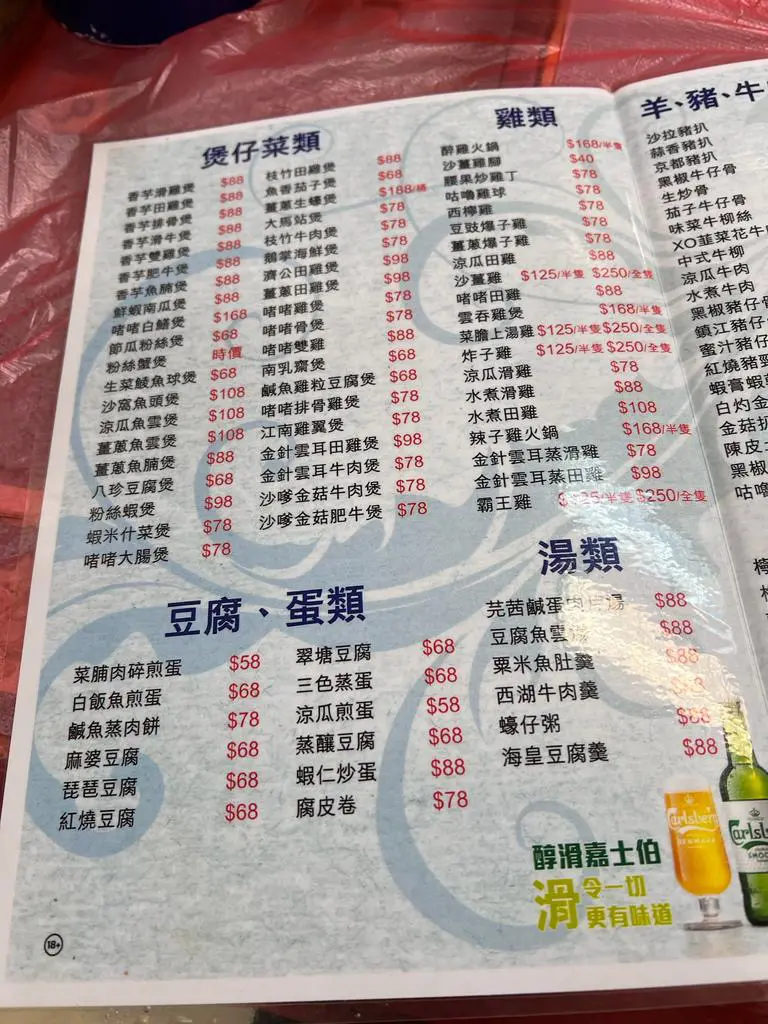 煲仔菜類
香芋滑雞煲 $88
香芋田雞煲 $88
香芋排骨煲 $88
香芋滑牛煲 $88
香芋雙雞煲 $88
香芋肥牛煲 $88
香芋魚腩煲 $88
鮮蝦南瓜煲 $88
啫啫白鱔煲 $168
節瓜粉絲煲 $68
粉絲蟹煲 時價
生菜鯪魚球煲 $68
沙窩魚頭煲 $108
涼瓜魚雲煲 $108
薑蔥魚雲煲 $108
薑蔥魚腩煲 $88
八珍豆腐煲 $68
粉絲蝦煲 $98
蝦米什菜煲 $78
啫啫大腸煲 $78
枝竹田雞煲 $88
魚香茄子煲 $68
薑蔥生蠔煲 $188/
大馬站煲 $78
枝竹牛肉煲 $78
鵝掌海鮮煲 $98
濟公田雞煲 $98
薑蔥田雞煲 $98
啫啫雞煲 $78
啫啫骨煲 $78
啫啫雙雞 $88
南乳齋煲 $68
鹹魚雞粒豆腐煲 $68
啫啫排骨雞煲 $78
江南雞翼煲 $78
金針雲耳田雞煲 $98
金針雲耳牛肉煲 $78
沙嗲金菇牛肉煲 $78
沙嗲金菇肥牛煲 $78
雞類
醉雞火鍋 $168/半隻
沙薑雞腳 $40
腰果炒雞丁 $78
咕嚕雞球 $78
西檸雞 $78
豆豉爆子雞 $78
薑蔥爆子雞 $78
涼瓜田雞 $88
沙薑雞 $125/半隻 $250/全隻
啫啫田雞 $88
雲吞雞煲 $168/半隻
菜膽上湯雞 $125/半隻 $250/全隻
炸子雞 $125/半隻 $250/全隻
涼瓜滑雞 $78
水煮滑雞 $88
水煮田雞 $108
辣子雞火鍋 $168/半隻
金針雲耳蒸滑雞 $78
金針雲耳蒸田雞 $98
霸王雞 $125/半隻 $250/全隻
豆腐、蛋類
菜脯肉碎煎蛋 $58
白飯魚煎蛋 $68
鹹魚蒸肉餅 $78
麻婆豆腐 $68
琵琶豆腐 $68
紅燒豆腐 $68
翠塘豆腐 $68
三色蒸蛋 $68
涼瓜煎蛋 $58
蒸釀豆腐 $68
蝦仁炒蛋 $88
腐皮卷 $78
湯類
芫茜鹹蛋肉片湯 $88
豆腐魚雲湯 $88
粟米魚肚羹 $88
西湖牛肉羹 $88
蠔仔粥 $88
海皇豆腐羹 $88
羊、豬、牛
沙拉豬扒
蒜香豬扒
京都豬扒
黑椒牛仔骨
生炒骨
茄子牛仔骨
味菜牛柳絲
XO韮菜花牛
中式牛柳
涼瓜牛肉
水煮牛肉
黑椒豬仔骨
鎮江豬仔
蜜汁豬仔
紅燒豬
蝦膏蝦
白灼金
金菇
陳皮
黑椒
咕嚕
醇滑嘉士伯
滑令一切
更有味道
Carlsberg
Carlsb
18+